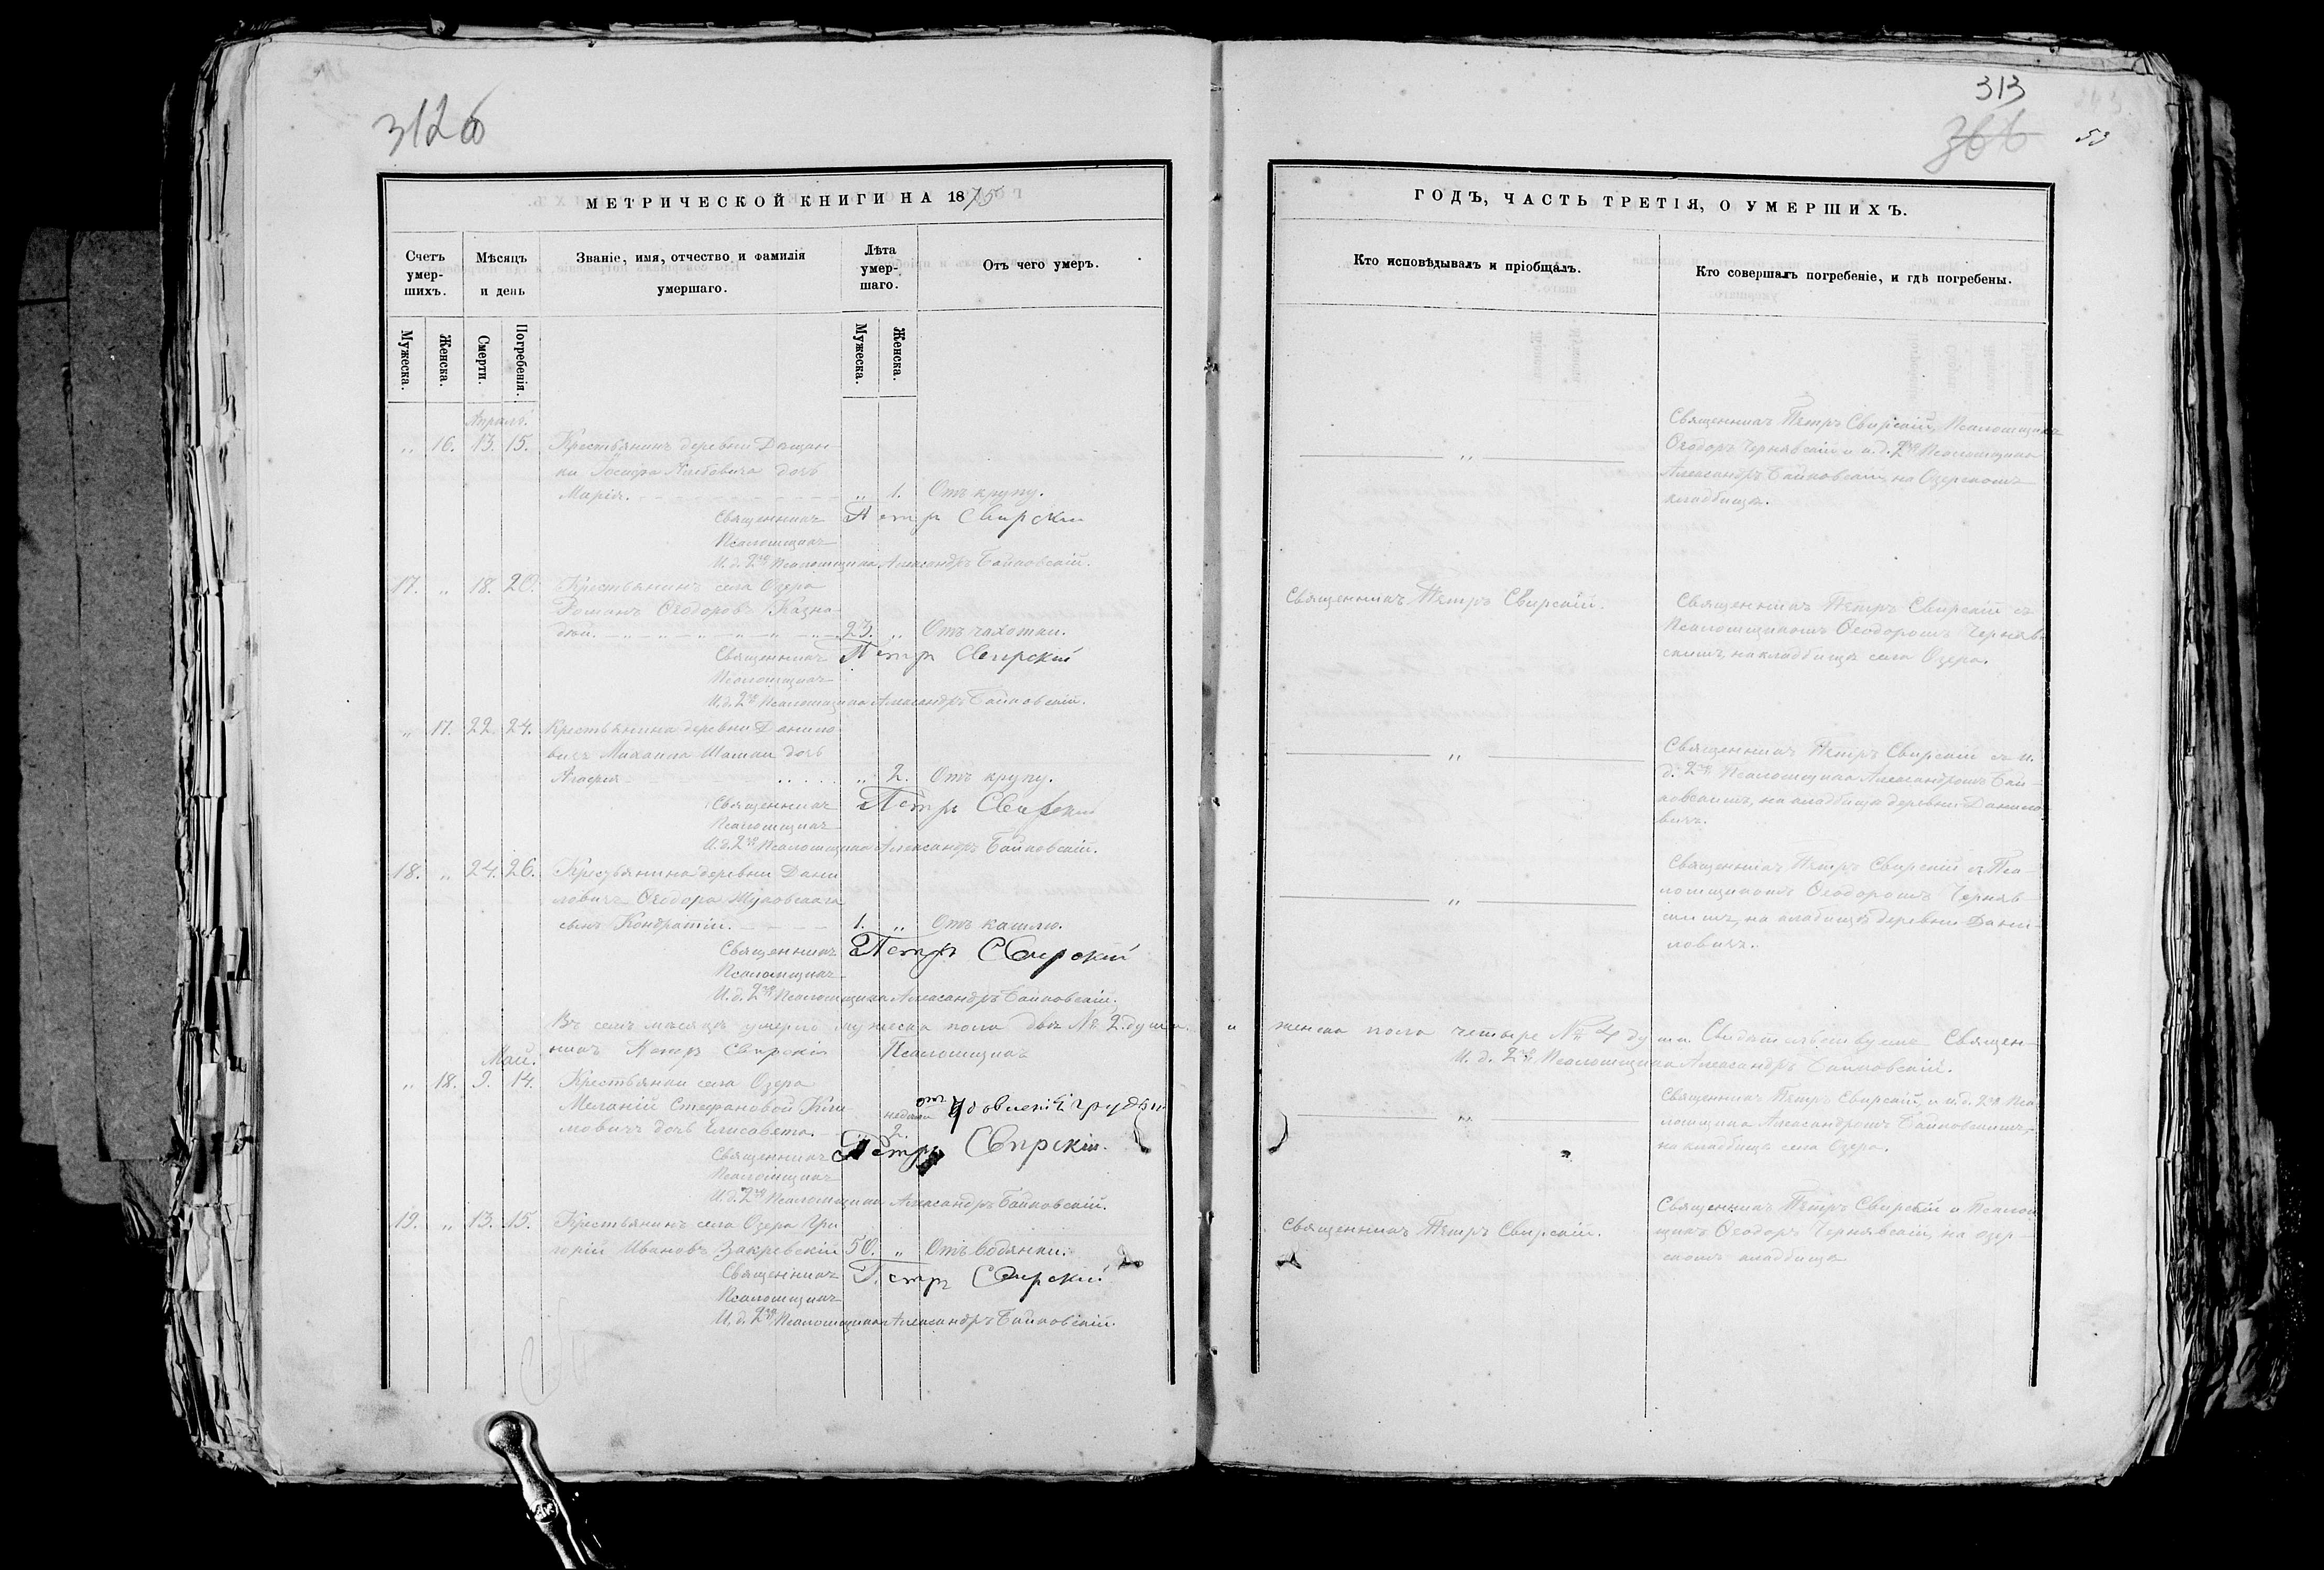 312 об
МЕТРИЧЕСКОЙ КНИГИ НА 1875
Счетъ умершихъ.
Мѣсяцъ и день
Званіе, имя, отчество и фамилія умершаго.
Лѣта умершаго.
Отъ чего умеръ.
Мужеска.
Женска.
Смерти.
Погребенія.
Мужеска.
Женска.
Апрѣль.
„ 16. 13. 15. Крестьянинъ деревни
дочь
Марія. „ 1. Отъ крупу.
Священникъ Петръ Свирскій
Псаломщикъ
И. д. 2го Псаломщика Александръ Байковскій.
17. „ 18. 20. Крестьянинъ села Озера
Романъ Ѳеодоровъ Казна-
дѣй. 23. „ Отъ чахотки.
Священникъ Петръ Свирскій
Псаломщикъ
И. д. 2го Псаломщика Александръ Байковскій.
„ 17. 22. 24. Крестьянина деревни Данило-
вичъ Михаила дочь
Агафія „ 2. Отъ крупу.
Священникъ Петръ Свирскій
Псаломщикъ
И. д. 2го Псаломщика Александръ Байковскій.
18. „ 24. 26. Крестьянина деревни Дани-
ловичъ Ѳеодора Жуковскаго
сынъ Кондратій. 1. „ Отъ кашлю.
Священникъ Петръ Свирскій
Псаломщикъ
И. д. 2го Псаломщика Александръ Байковскій.
Въ семъ мѣсяцѣ умерло мужеска пола двѣ № 2 души.
никъ Петръ Свирскій Псаломщикъ
Май.
„ 18. 9. 14. Крестьянки села Озера
Меланіи Стефановой Кли-
мовичъ дочь Елисавета. недели 2. отъ грудьи
Священникъ Петръ Свирскій.
Псаломщикъ
И. д. 2го Псаломщика Александръ Байковскій.
19. „ 13. 15. Крестьянинъ села Озера Гри-
горій Ивановъ Закревскій 50. „ Отъ водянки.
Священникъ Петръ Свирскій
Псаломщикъ
И. д. 2го Псаломщика Александръ Байковскій.
313
366
53
ГОДЪ, ЧАСТЬ ТРЕТІЯ, О УМЕРШИХЪ.
Кто исповѣдывалъ и пріобщалъ.
Кто совершалъ погребеніе, и гдѣ погребены.
Священникъ Петръ Свирскій, Псаломщикъ
Ѳеодоръ Чернявскій и и. д. 2го Псаломщика
Александръ Байковскій, на Озерскомъ
кладбищѣ.
Священникъ Петръ Свирскій.
Священникъ Петръ Свирскій съ
Псаломщикомъ Ѳеодоромъ Черняв-
скимъ, на кладбищѣ села Озера.
Священникъ Петръ Свирскій съ и.
д. 2го Псаломщика Александромъ Бай-
ковскимъ, на кладбищѣ деревни Данило-
вичъ.
Священникъ Петръ Свирскій съ Пса-
ломщикомъ Ѳеодоромъ Черняв-
скимъ, на кладбищѣ деревни Дани-
ловичъ.
женска пола четыре № 4 души. Свидѣтельствуемъ Священ-
И. д. 2го Псаломщика Александръ Байковскій.
Священникъ Петръ Свирскій, и и. д. 2го Пса-
ломщика Александромъ Байковскимъ,
на кладбищѣ села Озера.
Священникъ Петръ Свирскій.
Священникъ Петръ Свирскій и Псалом-
щикъ Ѳеодоръ Чернявскій, на озер-
скомъ кладбищѣ